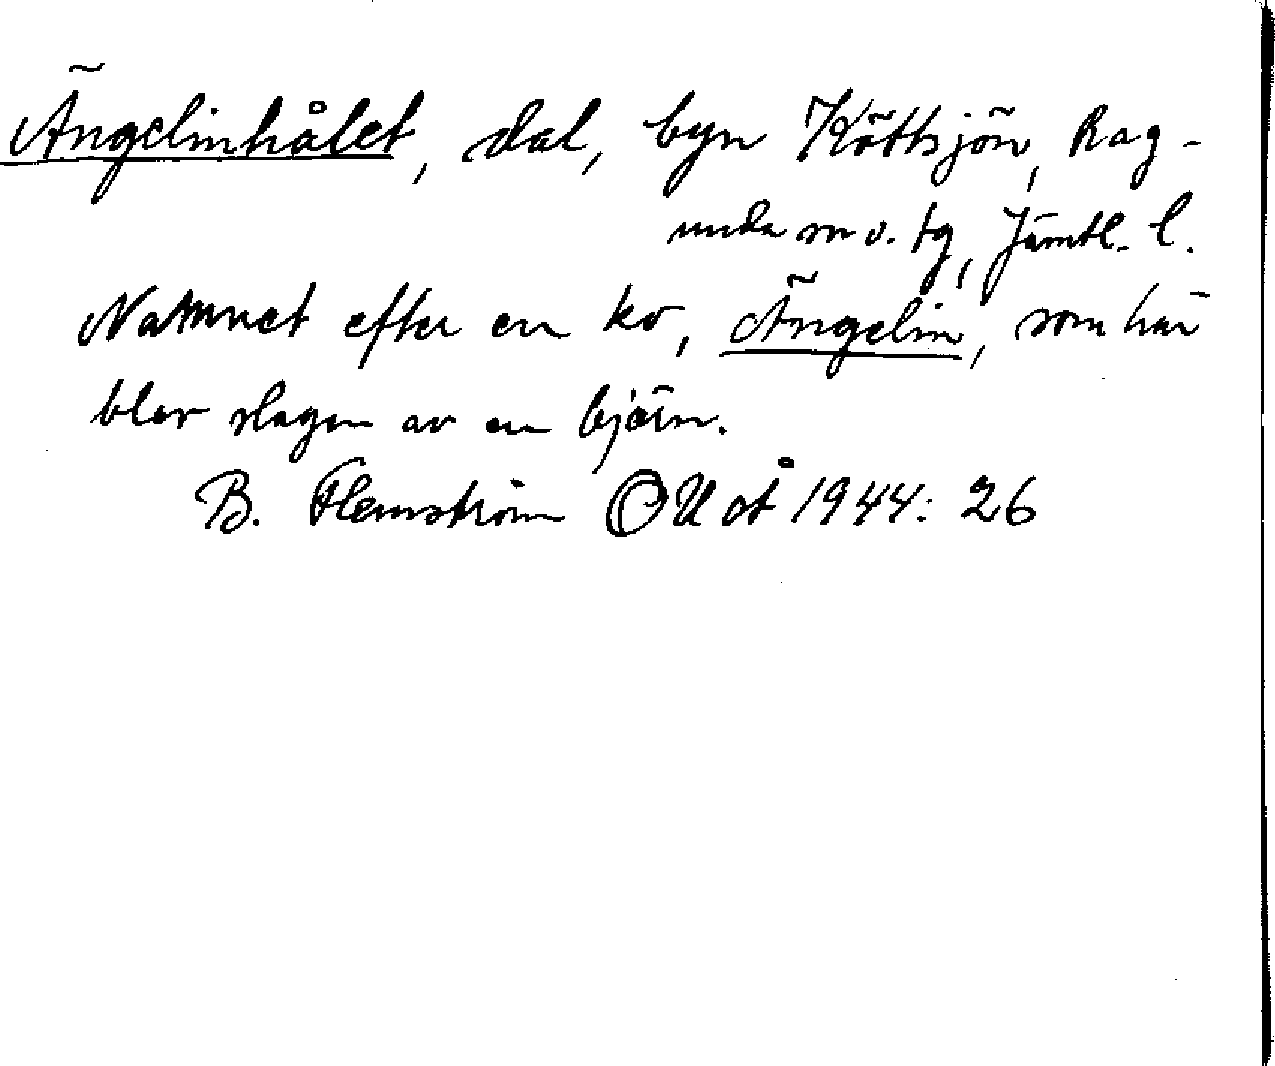 Ängelinhålet, dal, byn Köttsjön, Rag-
unda sn o. tg, Jämtl. l.
Namnet efter en ko, Ängelin, som här
blev slagen av en björn.
B. Flemström OUÅ 1944: 26